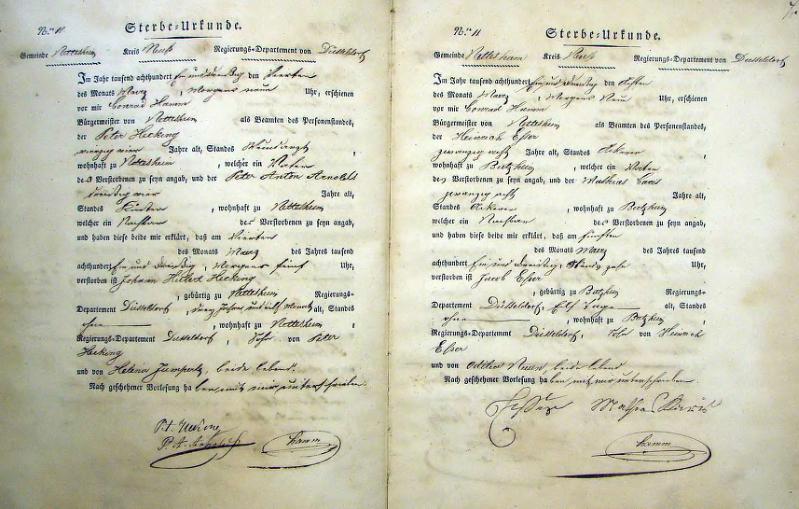 N.ro 10
Sterbe-Urkunde.
Gemeinde Nettesheim Kreis Neuß Regierungs-Departement von Düsseldorf
Im Jahr tausend achthundert Ein und dreißig den Vierten
des Monats März, Morgens neun Uhr, erschienen
vor mir Conrad Hamm
Bürgermeister von Nettesheim als Beamten des Personenstandes,
der Peter Hecking
vierzig vier Jahre alt, Standes Wundarzt
wohnhaft zu Nettesheim, welcher ein Vater
des Verstorbenen zu seyn angab, und der Peter Anton Arnolds
dreißig vier Jahre alt,
Standes, wohnhaft zu Nettesheim,
welcher ein Nachbar des Verstorbenen zu seyn angab,
und haben diese beide mir erklärt, daß am Vierten
des Monats März des Jahres tausend
achthundert Ein und dreißig, Morgens fünf Uhr,
verstorben ist Johann Hecking
, gebürtig zu Nettesheim Regierungs-
Departement Düsseldorf, alt, Standes
ohne, wohnhaft zu Nettesheim,
Regierungs-Departement Düsseldorf, Sohn von Peter
Hecking
und von Helena Jumpertz, beide lebend.
Nach geschehener Vorlesung haben mit mir unterschrieben
Hamm
N.ro 11
Sterbe-Urkunde.
Gemeinde Nettesheim Kreis Neuß Regierungs-Departement von Düsseldorf
Im Jahr tausend achthundert Ein und dreißig den
des Monats März, Morgens Neun Uhr, erschienen
vor mir Conrad Hamm
Bürgermeister von Nettesheim als Beamten des Personenstandes,
der Heinrich Esser
Jahre alt, Standes Ackerer
wohnhaft zu Butzheim, welcher ein
des Verstorbenen zu seyn angab, und der Mathias
zwanzig acht Jahre alt,
Standes Ackerer, wohnhaft zu Butzheim,
welcher ein Nachbar des Verstorbenen zu seyn angab,
und haben diese beide mir erklärt, daß am fünften
des Monats März des Jahres tausend
achthundert Ein und dreißig, Uhr,
verstorben ist Jacob Esser
, gebürtig zu Butzheim Regierungs-
Departement Düsseldorf, Elf Tage alt, Standes
ohne, wohnhaft zu Butzheim,
Regierungs-Departemmt Düsseldorf, Sohn von Heinrich
Esser
und von, beide lebend
Nach geschehener Vorlesung haben mit mir unterschrieben
Hamm